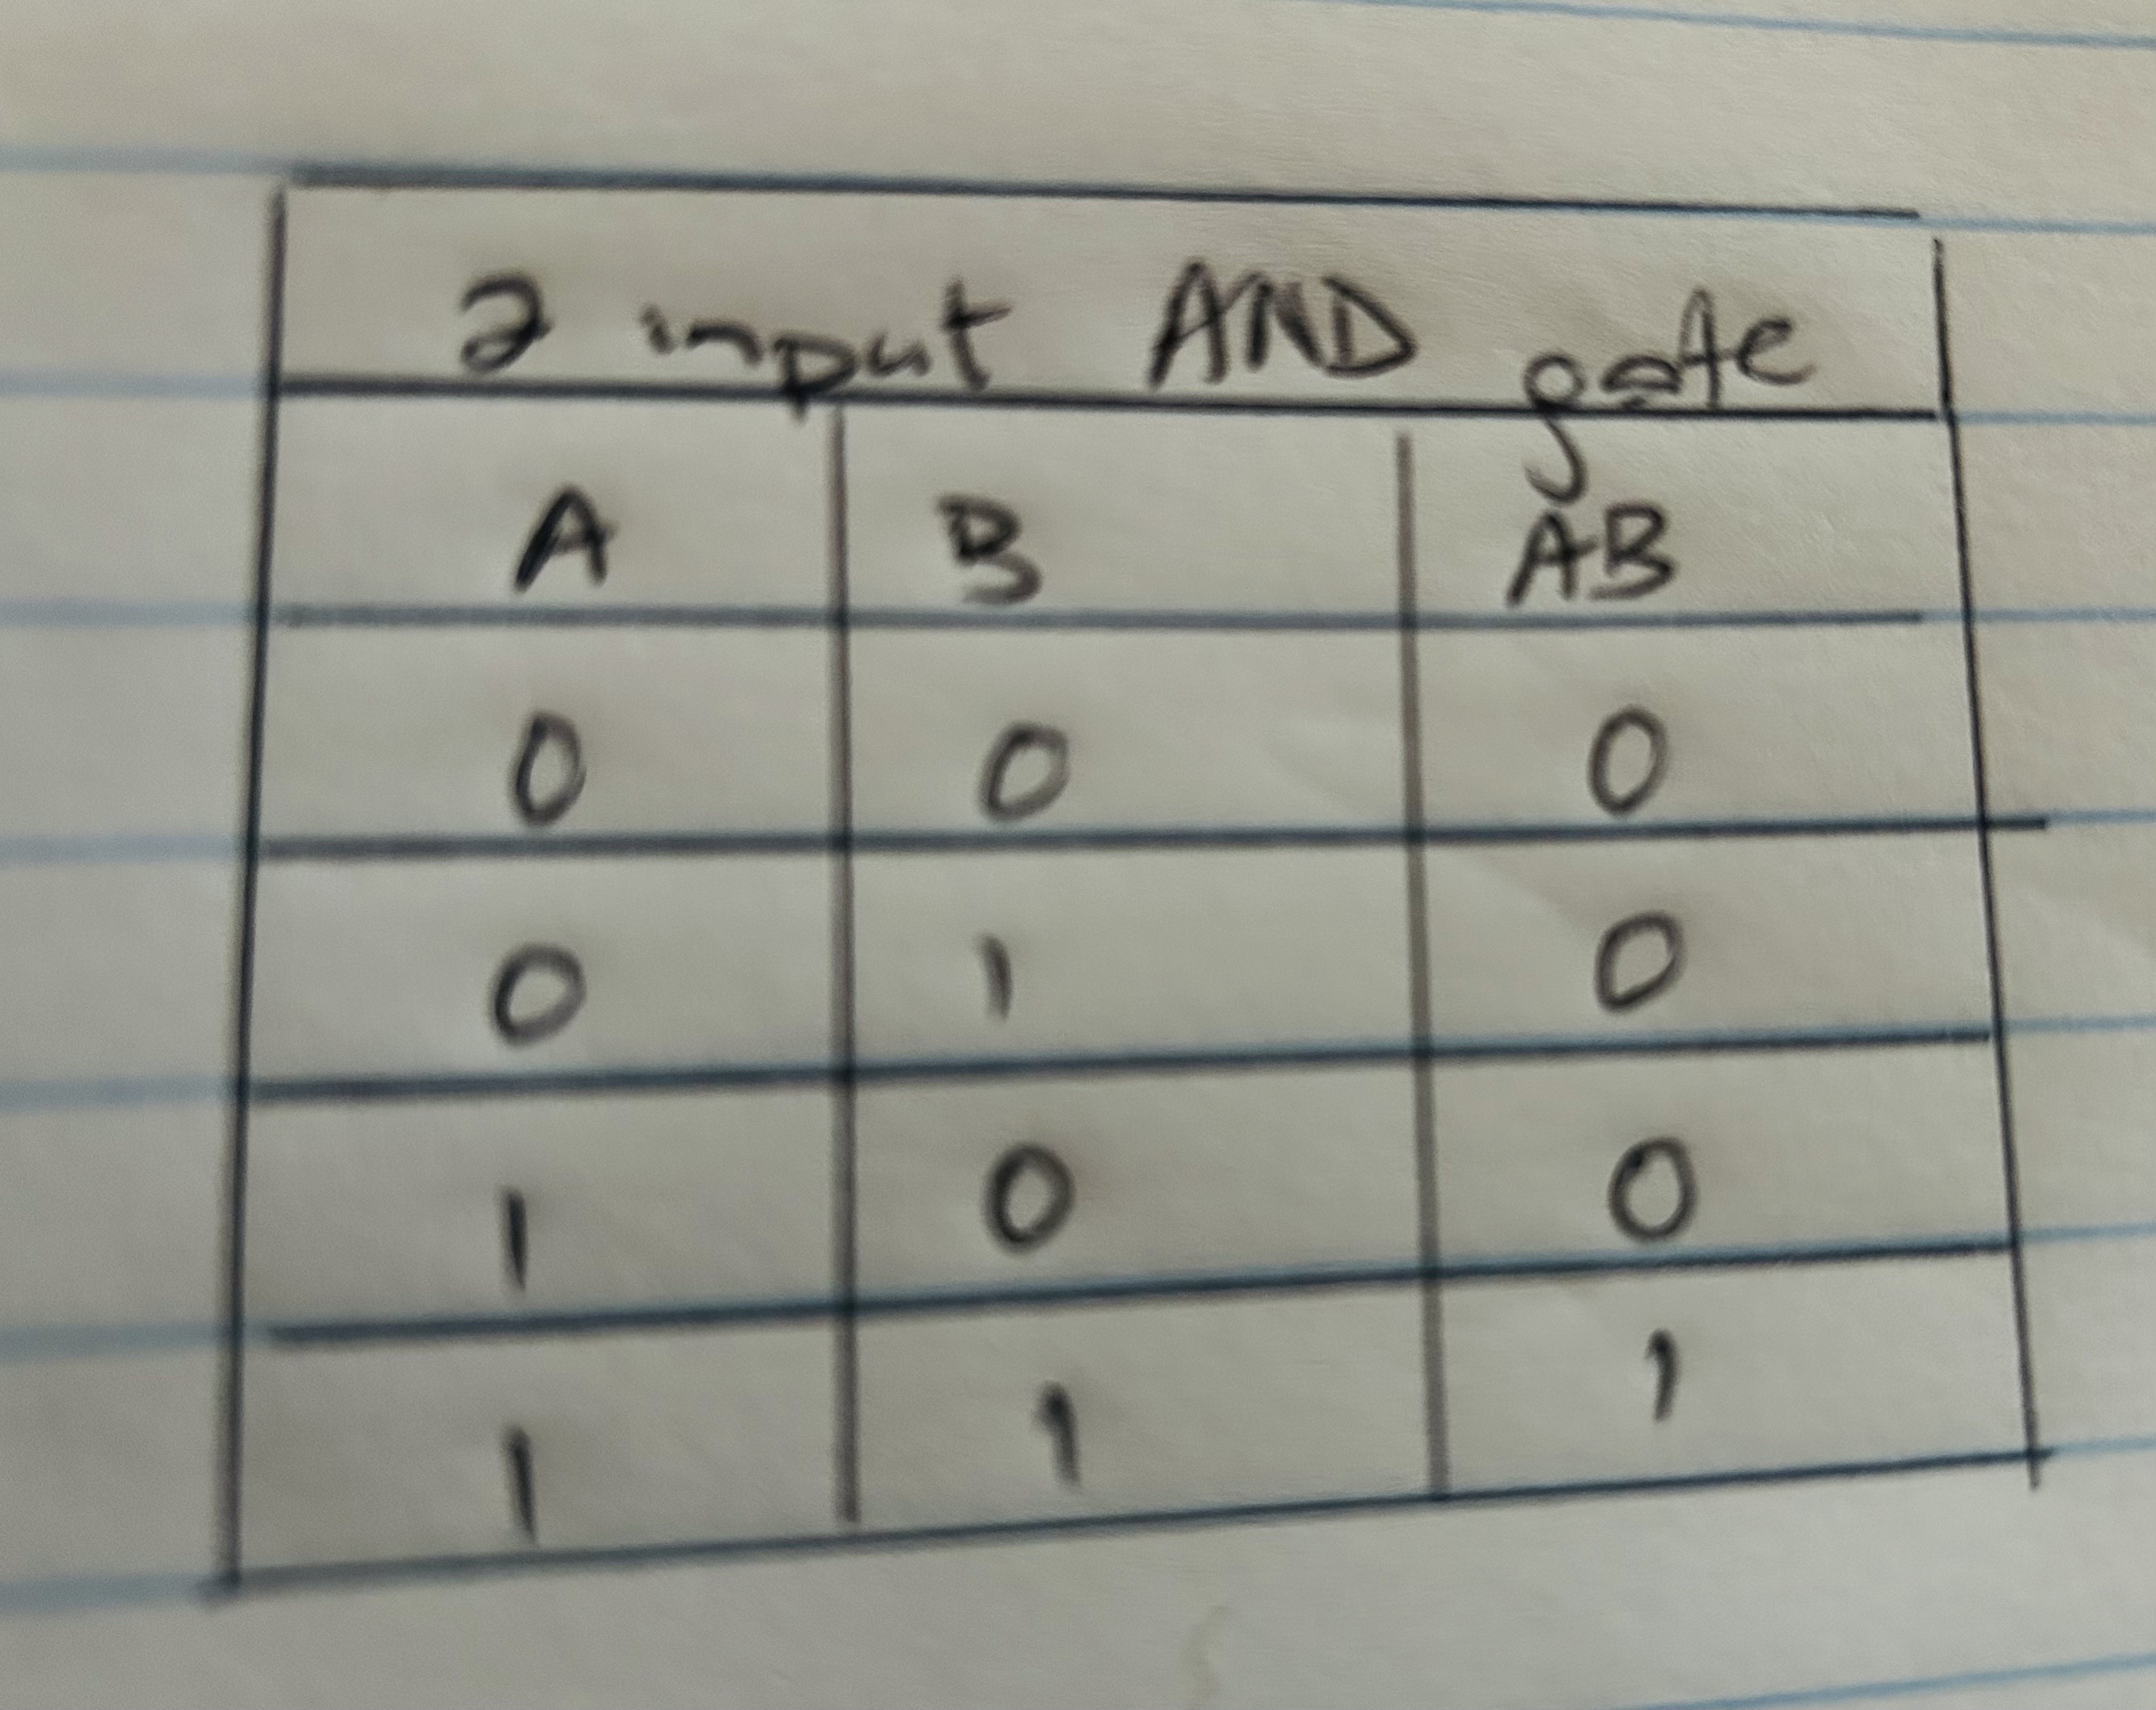 2 input AND gate
A B AB
0 0 0
0 1 0
1 0 0
1 1 1